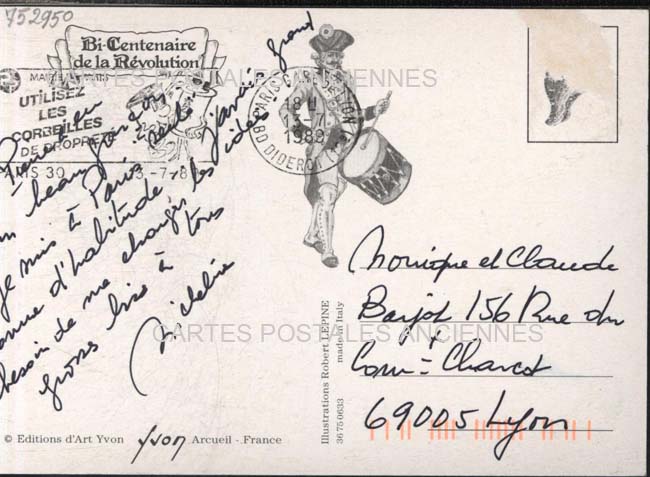 752950
Bi-Centenaire
de la Révolution
CARTES POSTALES ANCIENNES
UTILISEZ
LES
CORBEILLES
DE PROPRETÉ
PARIS 30
3-7-8
PARIS-GARE DE LYON
18 H
13-7
1989
BD DIDEROT (12e)
beau
je suis à Paris
comme d'habitude j'avais grand
besoin de me changer les idées
grosses bises à tous
Micheline
Monique et Claude
Barjot 156 Rue du
Comt Charcot
69005 Lyon
CARTES POSTALES ANCIENNES
Illustrations Robert LEPINE
made in Italy
36 75 0633
© Editions d'Art Yvon yvon Arcueil - France